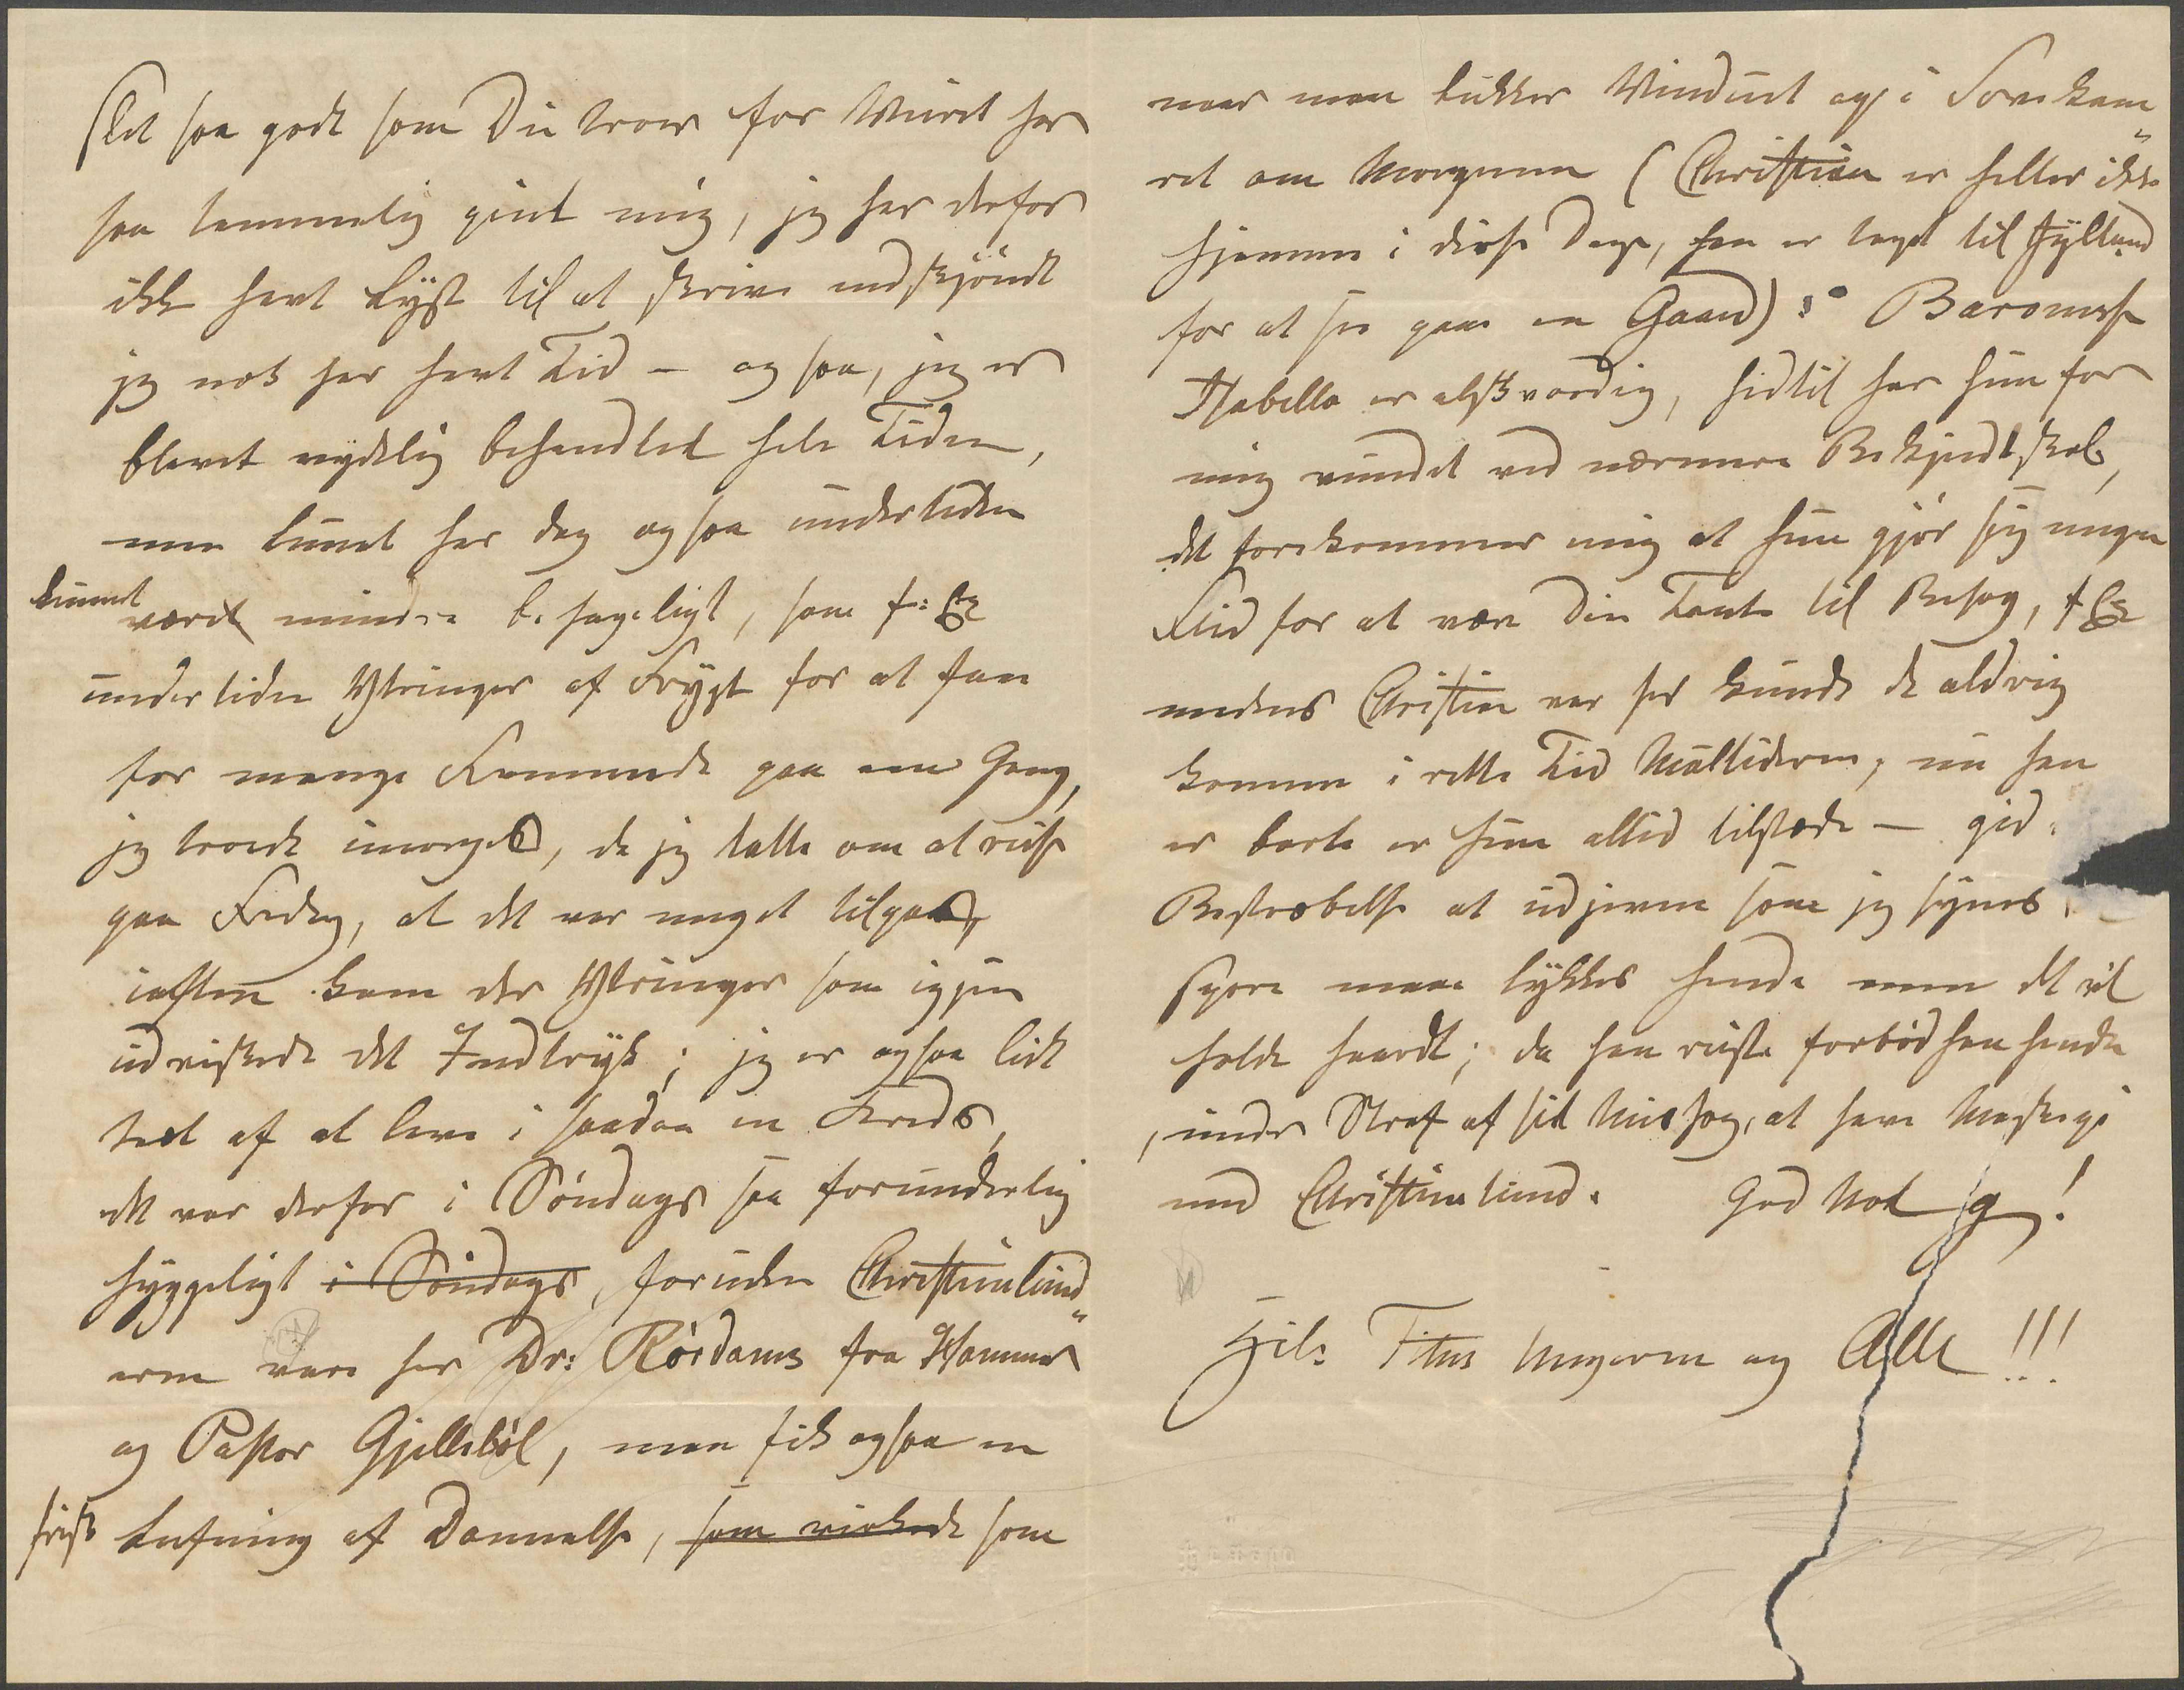 slet saa godt som Du troer for Muret har
saa temmelig piint mig, jeg har derfor
ikke havt Lyst til at skrive endskjöndt
jeg nok har havt Tid – og saa, jeg er
blevet nydelig behandlet hele Tiden,
men Lunet har dog ogsaa undertiden
kunnet
været mindre behageligt, som f: Ex
undertiden Yttringer af Frygt for at faae
for mange Fremmede paa een Gang,
jeg troede imorges, da jeg talte om at reise
paa Fredag, at det var meget tilpas,
iaften kom der Yttringer som igjen
udviskede det Indtryk; jeg er ogsaa lidt
træt af at leve i saadan en Kreds,
det var derfor i Söndags saa forunderlig
hyggeligt i Söndags, foruden Christinelund
erne vare her Dr: Rördams fra Hammer
og Pastor Gjellebøl, man fik ogsaa en
frisk Luftning af Dannelse, som virkede som
naar man lukker Vinduet op i Sovekam
ret om Morgenen (Christian er heller ikke
hjemme i disse Dage, han er taget til Jylland
for at see paa en Gaard): Baronesse
Isabella er elskværdig, hidtil har hun for
mig vundet ved nærmere Bekjendtskab,
det forekommer mig at hun gjör sig megen
Flid for at være Din Tante til Behag, f Ex
medens Christian var her kunde de aldrig
komme i rette Tid Maaltiderne, nu han
er borte er hun altid tilstede – gid
Bestræbelse at udjevne som jeg synes
spore maae lykkes hende men det vil
holde haardt; da han reiste forbød han hende
, under Straf af sit Mishag, at have Maskepi
med Christinelund. God Nat !
Hils Titus Ungerne og Alle !!!